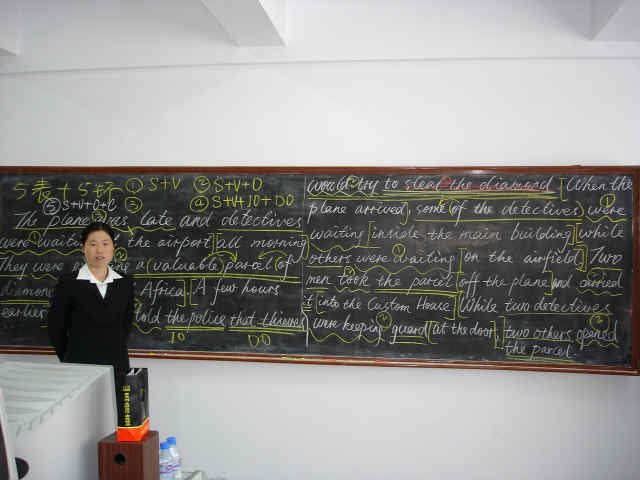 5表+5环 ① S+V ② S+V+O
⑤ S+V+O+C ③ ④ S+V+IO+DO
The plane was late and detectives
were waiting the airport all morning
They were a (valuable) parcel of
diamond Africa A few hours
earlier told the police that thieves
IO DO
would try to steal the diamond When the
plane arrived, some of the detectives were
waiting inside the main building while
others were waiting on the airfield. Two
men took the parcel off the plane and carried
it into the Custom House While two detectives
were keeping guard at the door, two others opened
the parcel.